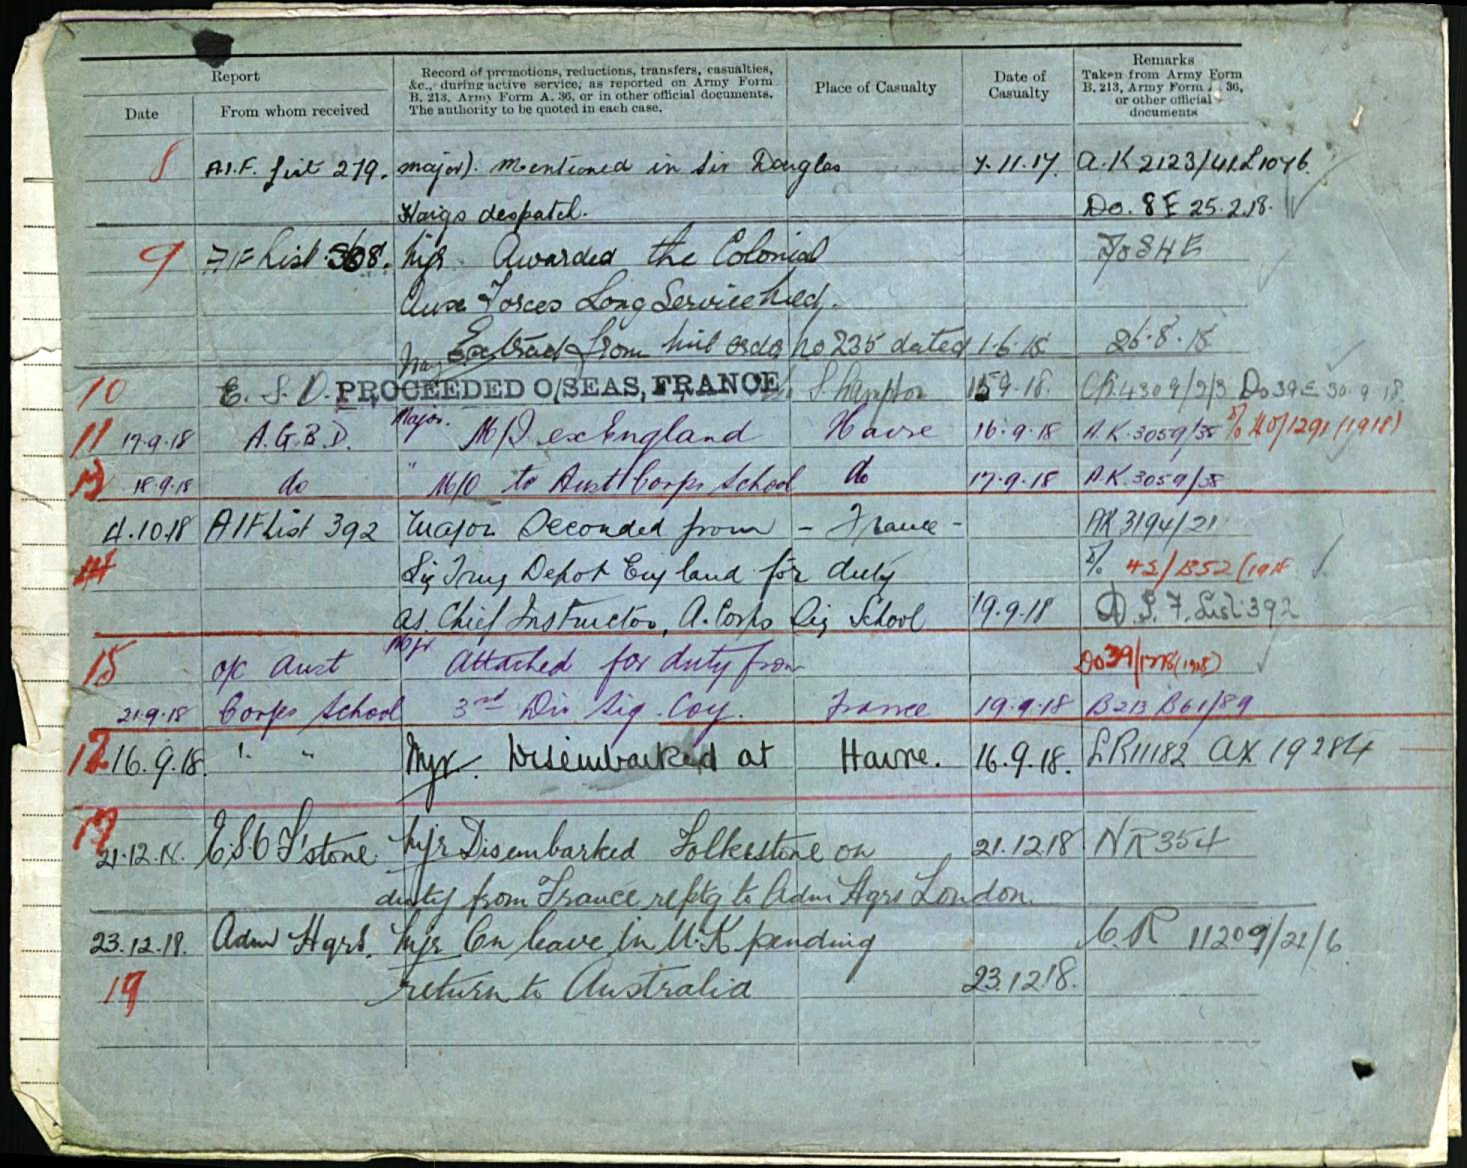 Report
Record of promotions, reductions, transfers, casualties,
&c., during active service, as reported on Army Form
B. 213, Army Form A. 36, or in other official documents.
The authority to be quoted in each case.
Place of Casualty
Date of
Casualty
Remarks
Taken from Army Form
B. 213, Army Form A. 36,
or other official
documents
Date
From whom received
8 A.I.F. List 279. major). mentioned in Sir Douglas 7.11.17. A.K 2123/41 L1076.
Haigs despatch. Do. 8E 25.2.18.
9 AIF List 368. Mjr Awarded the Colonial Do 34 E
Aux Forces Long Service Med.
Extract from Mil order no 235 dated 1.6.18 26.8.18
10 E. S. O. PROCEEDED O/SEAS, FRANCE S.hampton 15 9.18. 4309/2/3 Do 39E 30.9.18.
11 17.9.18 A.G.B.D. Major. M/I ex England Havre 16.9.18 A.K.3059/35 1291 (1918)
13 18.9.18 do " M/O to Aust Corps School do 17.9.18 A.K.3059/38
4.10.18 AIF List 392 Major Seconded from - France - AK 3194/21
14 Sig Trng Depot England for duty
as Chief Instructor, A. Corps Sig School 19.9.18 List 392
15 o/c Aust Mjr Attached for duty from
21.9.18 Corps School 3rd Div Sig. Coy. France 19.9.18 B213 B61/89
12 16.9.18. " " Mjr. Disembarked at Havre. 16.9.18. LR11182 AX 19284
21.12.18. ESO F'stone Mjr Disembarked Folkestone on 21.12.18 NR354
duty from France reptg to Adm Hqrs London.
23.12.18. Adm Hqrs. Mjr On leave in U.K pending 11209/21/6
19 return to Australia 23.12.18.